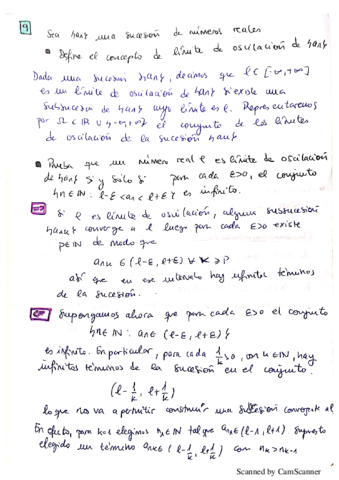 9 Sea {an} una sucesión de números reales
▪ Define el concepto de límite de oscilación de {an}
Dada una sucesión {an}, decimos que l ∈ [-∞,+∞]
es un límite de oscilación de {an} si existe una
subsucesión de {an} cuyo límite es l. Representaremos
por Ω ⊂ ℝ ∪ {-∞,+∞} el conjunto de los límites
de oscilación de la sucesión {an}
▪ Prueba que un número real l es límite de oscilación de
{an} si y sólo si para cada ε>0, el conjunto
{n ∈ ℕ: l-ε < an < l+ε} es infinito.
⇒ Si l es límite de oscilación, alguna subsucesión
{ank} converge a l luego para cada ε>0 existe
p∈ℕ de modo que
ank ∈ (l-ε, l+ε) ∀ k ≥ p
así que en ese intervalo hay infinitos términos
de la sucesión.
⇐ Supongamos ahora que para cada ε>0 el conjunto
{n∈ℕ: an∈(l-ε, l+ε)}
es infinito. En particular, para cada 1/k >0, con k∈ℕ, hay
infinitos términos de la sucesión en el conjunto.
(l-1/k, l+1/k)
lo que nos va a permitir construir una subsucesión convergente a l
En efecto, para k=1 elegimos n1∈ℕ tal que an1∈(l-1, l+1). Supuesto
elegido un término ank∈(l-1/k, l+1/k) con nk>nk-1
Scanned by CamScanner